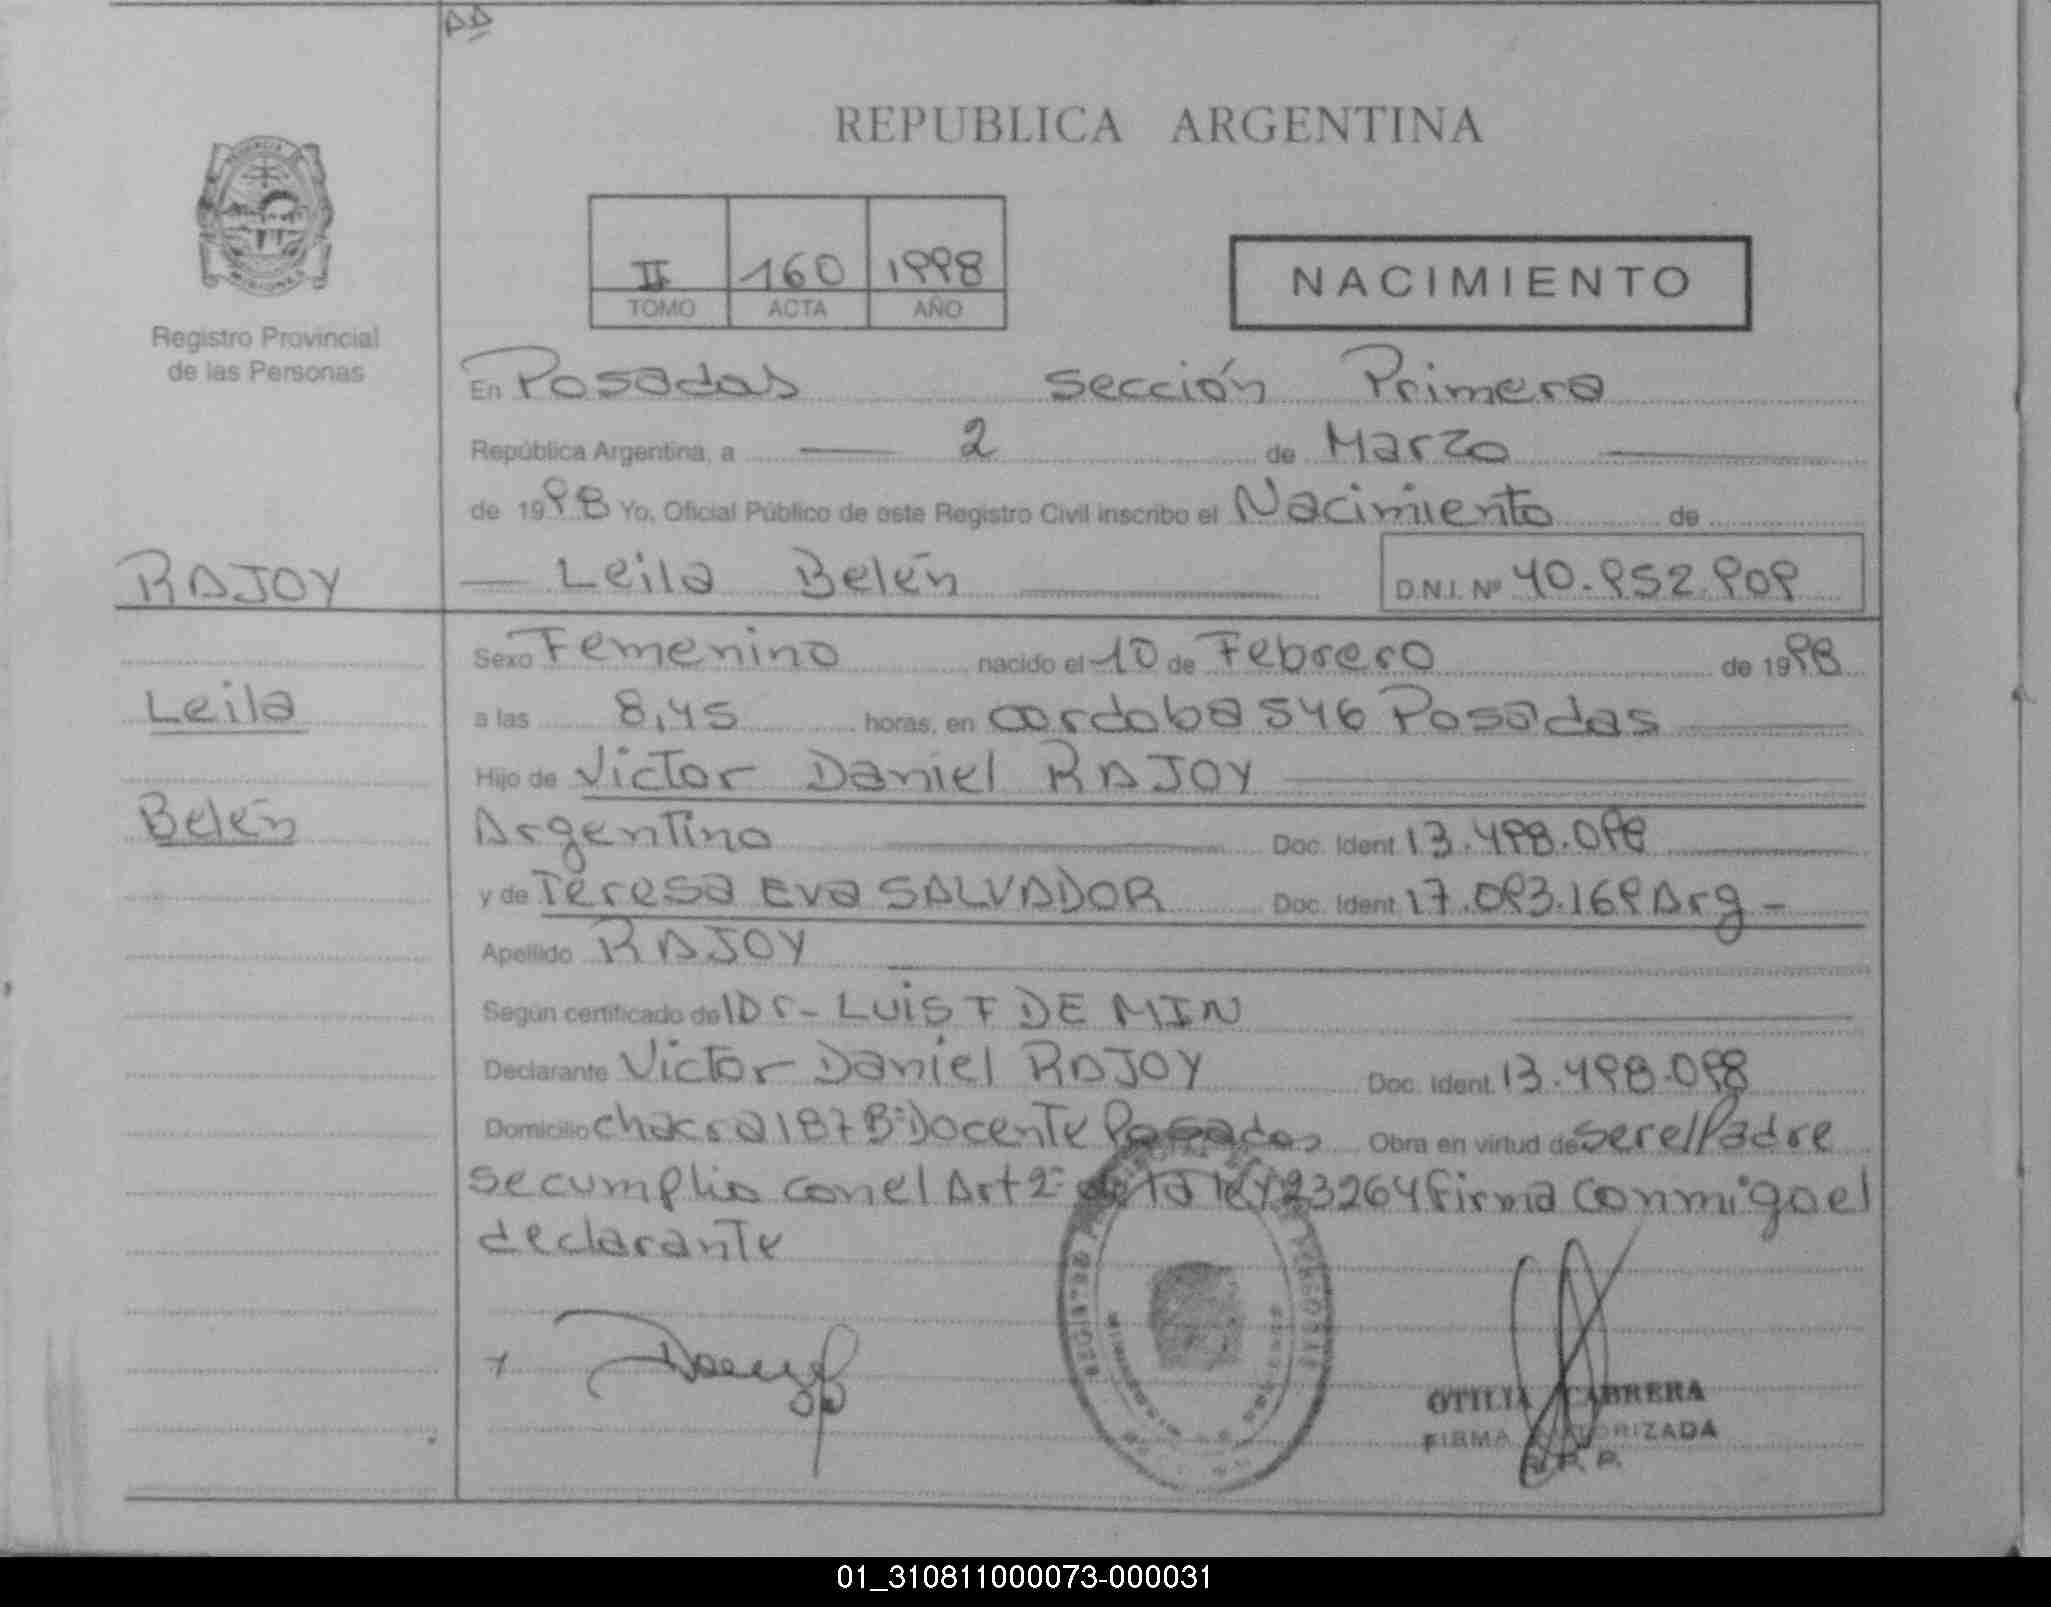 AA
REPUBLICA ARGENTINA
II 160 1998
TOMO ACTA AÑO
NACIMIENTO
Registro Provincial
de las Personas
En Posadas Sección Primera
República Argentina, a 2 de Marzo
de 1998 Yo, Oficial Público de este Registro Civil inscribo el Nacimiento de
RAJOY
Leila Belén D.N.I. Nº 40.952.909
Sexo Femenino nacido el 10 de Febrero de 1998
Leila
a las 8,45 horas, en cordoba 546 Posadas
Hijo de Victor Daniel RAJOY
Belén
Argentino Doc. Ident. 13.498.098
y de Teresa Eva SALVADOR Doc. Ident. 17.093.169 Arg -
Apellido RAJOY
Según certificado del Dr - LUIS F DE MIN
Declarante Victor Daniel RAJOY Doc. Ident. 13.498.098
Domicilio chacra 187 Bº Docente Posadas Obra en virtud de ser el Padre
se cumplio con el Art 2º de la ley 23264 firma conmigo el
declarante
OTILIA CABRERA
FIRMA AUTORIZADA
R. P. P.
01_310811000073-000031